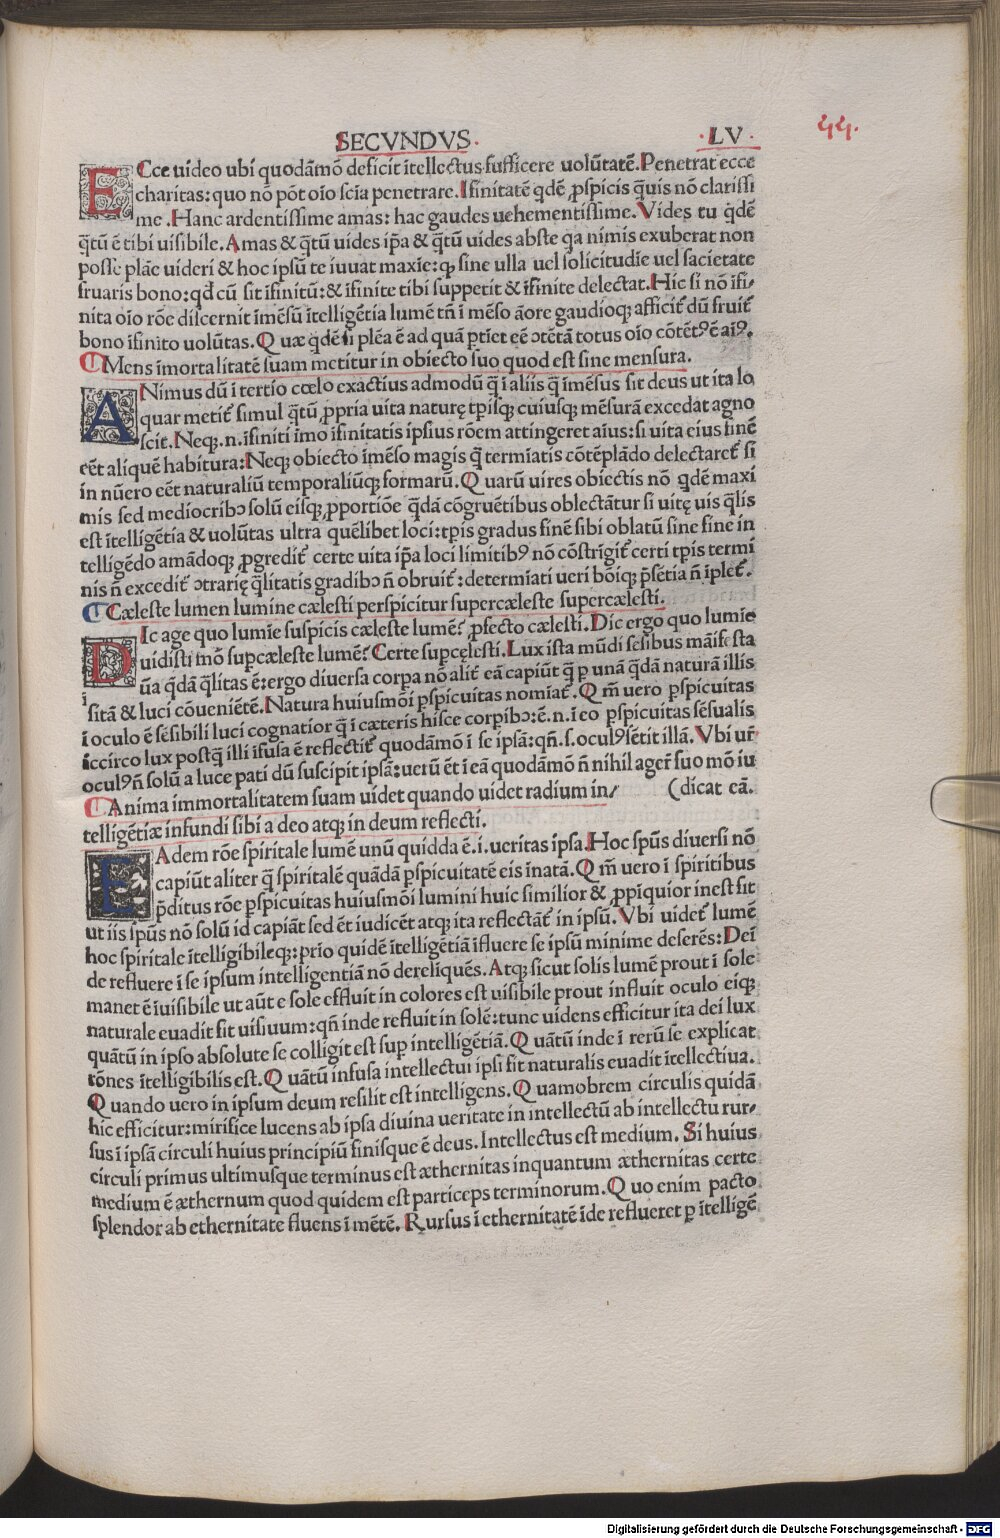 SECVNDVS. .LV. 44.
ECce uideo ubi quodãmõ deficit ĩtellectus sufficere uolũtatẽ. Penetrat ecce
charitas: quo nõ põt oĩo scĩa penetrare. Ifinitatẽ qdẽ ꝑspicis quis nõ clarissi
me. Hanc ardentissime amas: hac gaudes uehementissime. Vides tu qdẽ
q̃tũ ẽ tibi uisibile. Amas & q̃tũ uides ip̃a & q̃tũ uides abste qa nimis exuberat non
posse plãe uideri & hoc ipsũ te iuuat maxĩe: ꝙ sine ulla uel solicitudĩe uel sacietate
fruaris bono: qd cũ sit ĩfinitũ: & ĩfinite tibi suppetit & ĩfinite delectat. Hic si nõ ĩfi-
nita oĩo rõe discernit ĩmẽsũ ĩtelligẽtia lumẽ tñ ĩ mẽso ãore gaudioqꝫ afficit᷑ dũ fruit᷑
bono ĩfinito uolũtas. Quæ qdẽ si plẽa ẽ ad quã ꝑtiet eẽ ɔtẽtã totus oĩo cõtẽtꝰ ẽ aĩꝰ.
Mens ĩmortalitatẽ suam metitur in obiecto suo quod est sine mensura.
ANimus dũ ĩ tertio cœlo exactius admodũ q̃ ĩ aliis q̃ ĩmẽsus sit deus ut ita lo
quar metit᷑ simul q̃tũ ꝓpria uita naturę tp̃isqꝫ cuiusqꝫ mẽsurã excedat agno
scit. Neqꝫ.n.ĩfiniti ĩmo ĩfinitatis ipsius rõem attingeret aĩus: si uita eius finẽ
eẽt aliquẽ habitura: Neqꝫ obiecto ĩmẽso magis q̃ termĩatis cõtẽplãdo delectaret᷑ si
in nũero eẽt naturaliũ temporaliũqꝫ formarũ. Quarũ uires obiectis nõ qdẽ maxi
mis sed mediocribꝰ solũ eisqꝫ ꝓportiõe q̃dã cõgruẽtibus oblectãtur si uitę uis q̃lis
est ĩtelligẽtia & uolũtas ultra quẽlibet loci: tp̃is gradus finẽ sibi oblatũ sine fine in
telligẽdo amãdoqꝫ ꝓgredit᷑ certe uita ip̃a loci limitibꝰ nõ cõstrĩgit᷑ certi tp̃is termi
nis ñ excedit᷑ ɔtrarię q̃litatis gradibꝰ ñ obruit᷑: determĩati ueri boĩqꝫ p̃sẽtia ñ ĩplet᷑.
Cæleste lumen lumine cælesti perspicitur supercæleste supercælesti.
DIc age quo lumĩe suspicis cæleste lumẽ? ꝓfecto cælesti. Dic ergo quo lumĩe
uidisti mõ supcæleste lumẽ? Certe supcęlesti. Lux ista mũdi sẽsibus mãifesta
ũa q̃dã q̃litas ẽ: ergo diuersa corpa nõ alit᷑ eã capiũt q̃ ꝑ unã q̃dã naturã illis
ĩsitã & luci cõueniẽtẽ. Natura huiusmõi ꝑspicuitas nomĩat᷑. Qm̃ uero ꝑspicuitas
ĩ oculo ẽ sẽsibili luci cognatior q̃ ĩ cæteris hisce corpibꝰ: ẽ.n.ĩ eo ꝑspicuitas sẽsualis
iccirco lux postq̃ illi ĩfusa ẽ reflectit᷑ quodãmõ ĩ se ipsã: qñ.s.oculꝰ sẽtit illã. Vbi ur̃
oculꝰ ñ solũ a luce pati dũ suscipit ipsã: uerũ ẽt ĩ eã quodãmõ ñ nihil ager̃ suo mõ iu
Anima immortalitatem suam uidet quando uidet radium in/ (dicat eã.
telligẽtiæ infundi sibi a deo atqꝫ in deum reflecti.
EAdem rõe spiritale lumẽ unũ quidda ẽ.i.ueritas ipsa. Hoc sp̃us diuersi nõ
capiũt aliter q̃ spiritalẽ quãdã ꝑspicuitatẽ eis ĩnatã. Qm̃ uero ĩ spiritibus
p̃ditus rõe ꝑspicuitas huiusmõi lumini huic similior & ꝓpĩquior inest fit
ut iis sp̃us nõ solũ id capiãt sed ẽt iudicẽt atqꝫ ita reflectãt᷑ in ipsũ. Vbi uidet᷑ lumẽ
hoc spiritale ĩtelligibileqꝫ: prio quidẽ ĩtelligẽtiã ĩfluere se ipsũ minime deserẽs: Deĩ
de refluere ĩ se ipsum intelligentiã nõ derelĩquẽs. Atqꝫ sicut solis lumẽ prout ĩ sole
manet ẽ ĩuisibile ut aũt e sole effluit in colores est uisibile prout influit oculo eiqꝫ
naturale euadit fit uisuum: qñ inde refluit in solẽ: tunc uidens efficitur ita dei lux
quãtũ in ipso absolute se colligit est sup intelligẽtiã. Quãtũ inde ĩ rerũ se explicat
rõnes ĩtelligibilis est. Quãtũ infusa intellectui ipsi fit naturalis euadit ĩtellectiua.
Quando uero in ipsum deum resilit est intelligens. Quamobrem circulis quidã
hic efficitur: mirifice lucens ab ipsa diuina ueritate in intellectũ ab intellectu rur-
sus ĩ ipsã circuli huius principiũ finisque ẽ deus. Intellectus est medium. Si huius
circuli primus ultimusque terminus est æthernitas inquantum æthernitas certe
medium ẽ æthernum quod quidem est particeps terminorum. Quo enim pacto
splendor ab ethernitate fluens ĩ mẽtẽ. Rursus ĩ ethernitatẽ ĩde reflueret ꝑ ĩtelligẽ
Digitalisierung gefördert durch die Deutsche Forschungsgemeinschaft - DFG